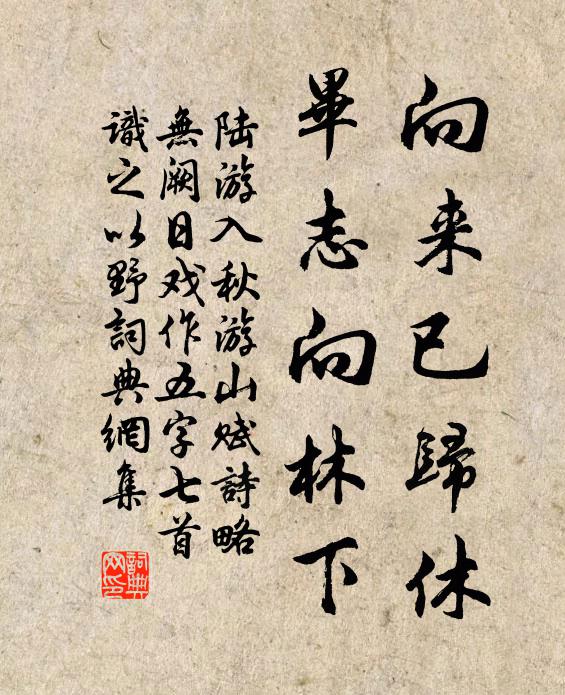 向来已歸休
畢志向林下
陆游入秋游山赋詩略
無阙日戏作五字七首
識之以野詞典網集
詞典
网印